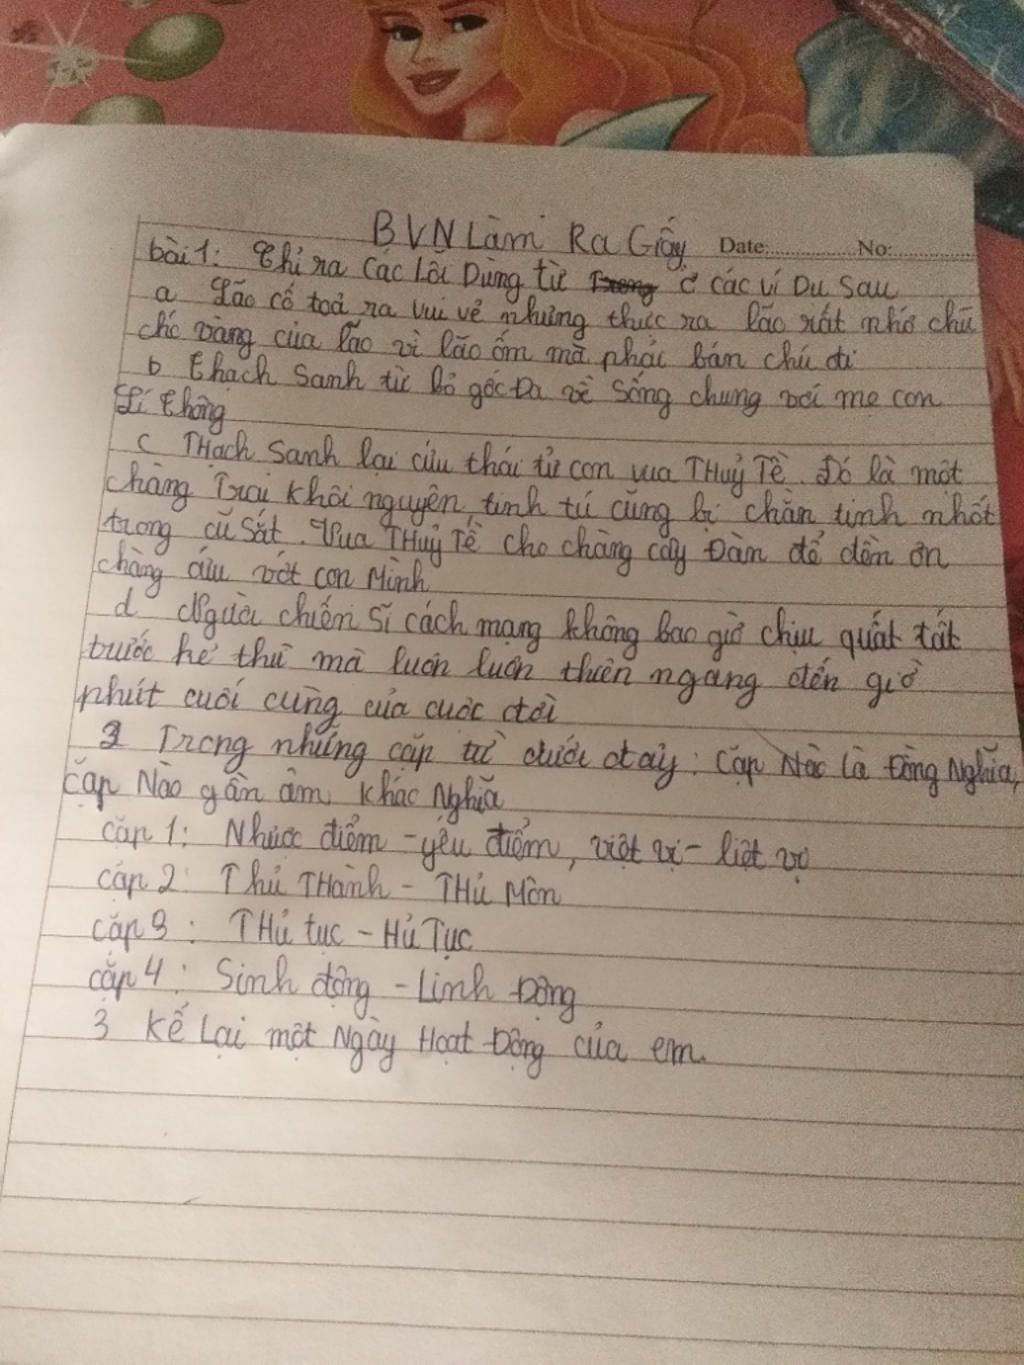 BVN Làm Ra Giấy Date:............ No:............
bài 1: Chỉ ra các Lỗi Dùng từ ở các ví Dụ Sau
a Lão cố toả ra vui vẻ nhưng thực ra lão rất nhớ chú
chó vàng của lão vì lão ốm mà phải bán chú đi
b Thạch Sanh từ bỏ gốc Đa về sống chung với mẹ con
Lí Thông
c THạch Sanh lại cứu thái tử con vua THuỷ Tề. Đó là một
chàng Trai khôi nguyên, tinh tú cũng bị chằn tinh nhốt
trong cũ Sắt. Vua THuỷ Tề cho chàng cây Đàn để đền ơn
chàng cứu vớt con Mình
d Người chiến Sĩ cách mạng không bao giờ chịu quất tất
trước kẻ thù mà luôn luôn thiên ngang đến giờ
phút cuối cùng của cuộc đời
2 Trong những cặp từ dưới đây: Cặp Nào là Đồng Nghĩa,
cặp Nào gần âm khác Nghĩa
cặp 1: Nhược điểm - yếu điểm, việt vị - liệt vị
cặp 2: Thủ THành - THủ Môn
cặp 3: THủ tục - Hủ Tục
cặp 4: Sinh động - Linh Động
3 Kể Lại một Ngày Hoạt Động của em.